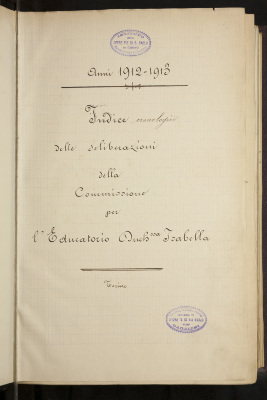 Anni 1912-1913
Indice cronologico
delle deliberazioni
della
Commissione
per
l'Educatorio Duch.ssa Isabella
Torino